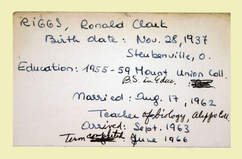 RIGGS, Ronald Clark
Birth date: Nov. 28, 1937
Steubenville, O.
Education: 1955-59 Mount Union Coll.
BS in Educ.
Married: Aug. 17, 1962
Teacher of biology, Aleppo Coll.
Arrived: Sept. 1963
Term June 1966